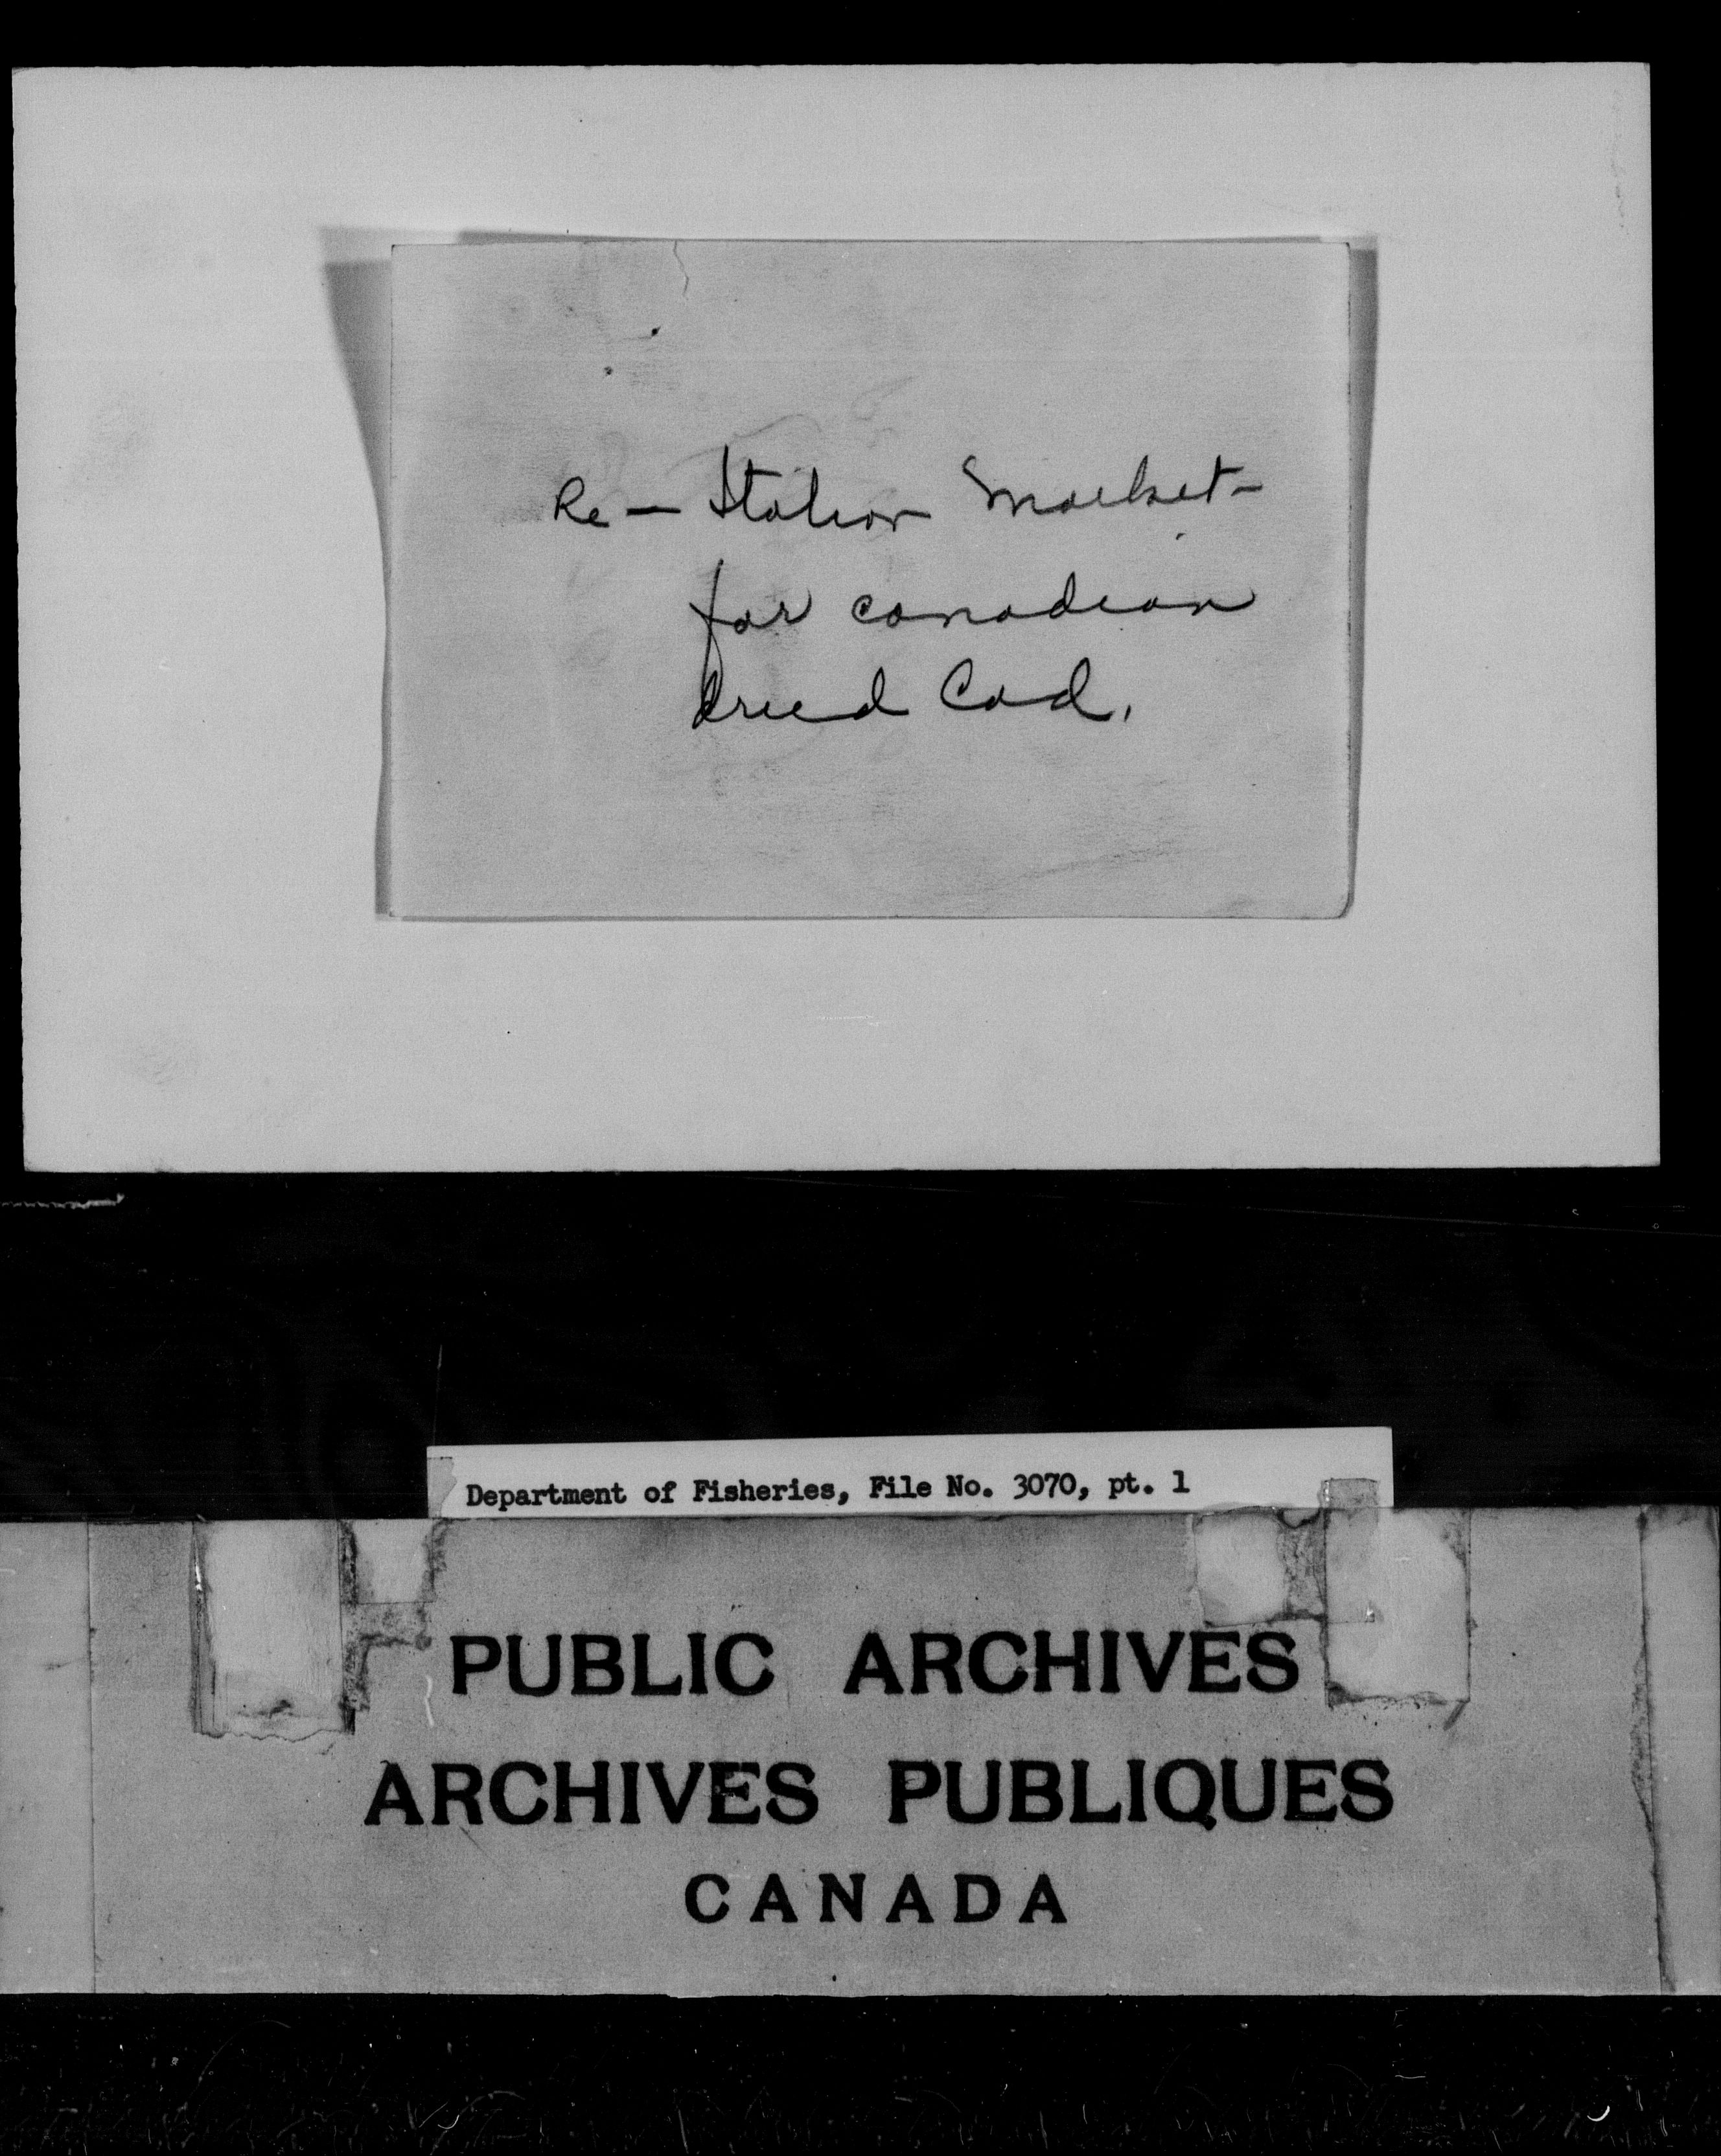 Re — Italian Market
for Canadian
dried Cod.
Department of Fisheries, File No. 3070, pt. 1
PUBLIC ARCHIVES
ARCHIVES PUBLIQUES
CANADA